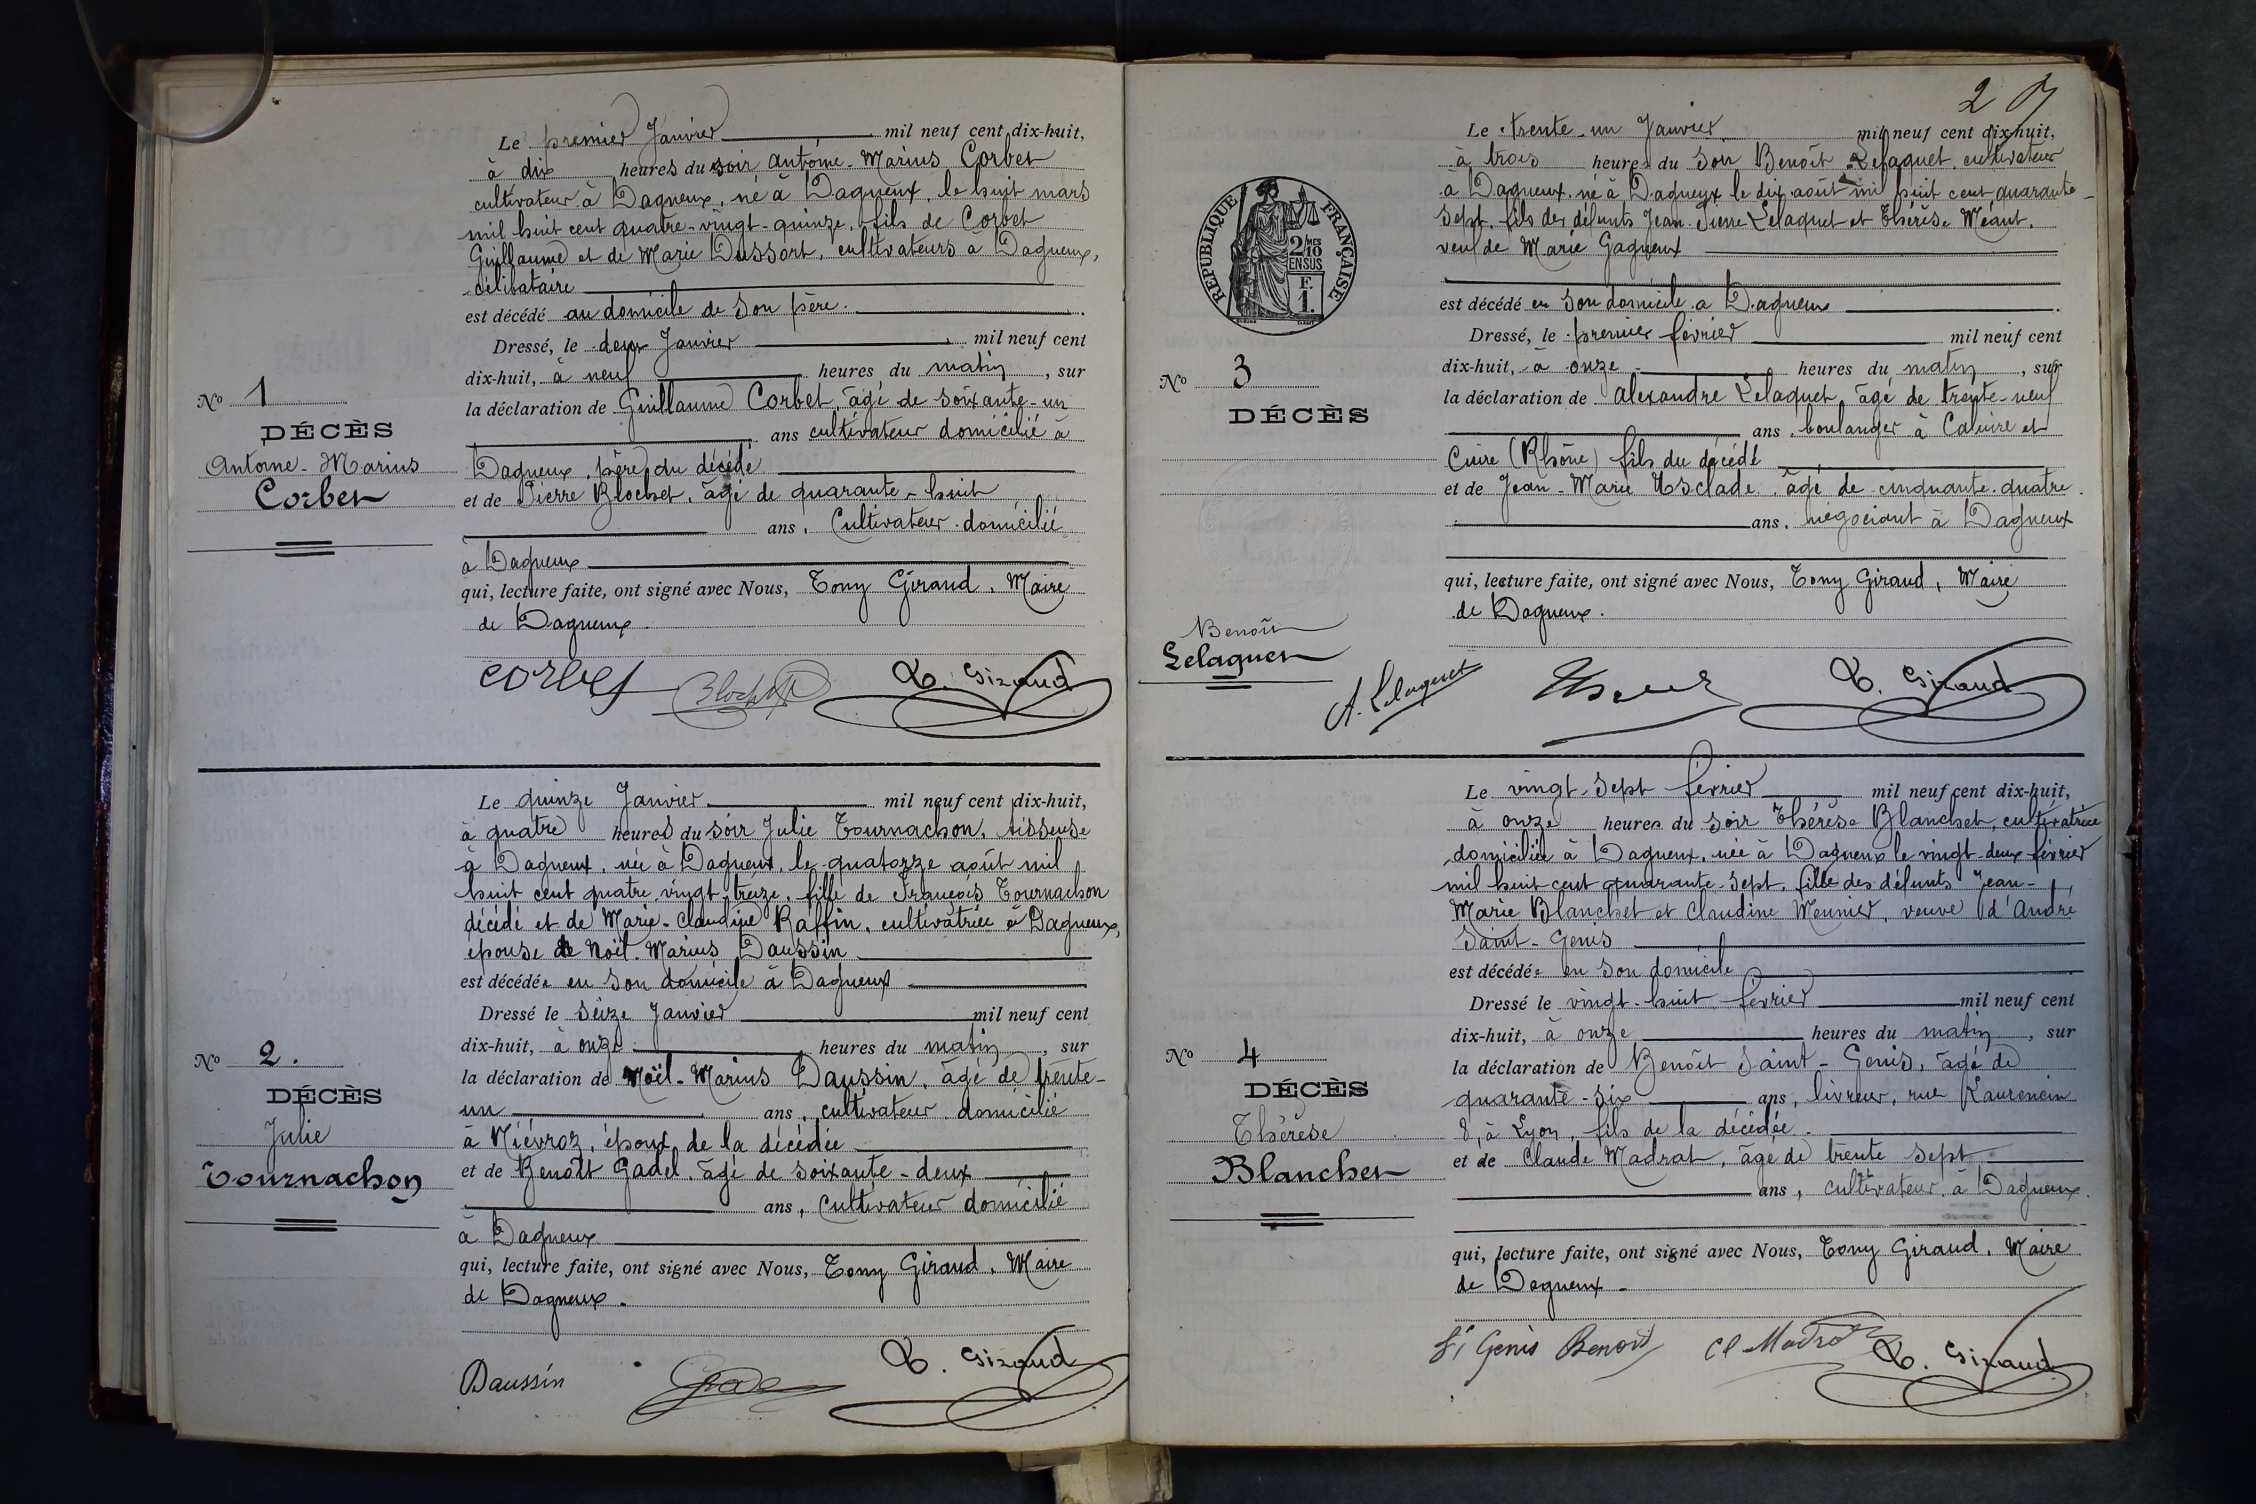 Le premier Janvier mil neuf cent dix-huit,
à dix heures du soir Antoine-Marius Corbet
cultivateur à Dagneux, né à Dagneux, le huit mars
mil huit cent quatre-vingt-quinze, fils de Corbet
Guillaume et de Marie Dussort, cultivateurs à Dagneux,
célibataire
est décédé au domicile de son père.
Dressé, le deux Janvier mil neuf cent
dix-huit, à neuf heures du matin, sur
la déclaration de Guillaume Corbet âgé de soixante-un
ans cultivateur domicilié à
Dagneux, père du décédé
et de Pierre Blochet, âgé de quarante-huit
ans, Cultivateur domicilié
à Dagneux
qui, lecture faite, ont signé avec Nous, Tony Giraud, Maire
de Dagneux.
Nº 1
DÉCÈS
Antoine-Marius
Corbet
Corbet Blochet T. Giraud
Le quinze Janvier mil neuf cent dix-huit,
à quatre heures du soir Julie Tournachon, tisseuse
à Dagneux, née à Dagneux, le quatorze août mil
huit cent quatre vingt treize, fille de François Tournachon
décédé et de Marie-Claudine Raffin, cultivatrice à Dagneux,
épouse de Noël-Marius Daussin
est décédée en son domicile à Dagneux
Dressé le seize Janvier mil neuf cent
dix-huit, à onze heures du matin, sur
la déclaration de Noël-Marius Daussin, âgé de trente-
un ans, cultivateur domicilié
à Niévroz, époux de la décédée
et de Benoît Gadel, âgé de soixante-deux
ans, Cultivateur domicilié
à Dagneux
qui, lecture faite, ont signé avec Nous, Tony Giraud, Maire
de Dagneux.
Nº 2.
DÉCÈS
Julie
Tournachon
Daussin T. Giraud
2
Le trente-un Janvier mil neuf cent dix-huit,
à trois heures du soir Benoît Lelaquet, cultivateur
à Dagneux, né à Dagneux le dix août mil huit cent quarante-
sept, fils des défunts Jean-Pierre Lelaquet et Thérèse Méant.
veuf de Marie Gagneux
est décédé en son domicile à Dagneux
Dressé, le premier février mil neuf cent
dix-huit, à onze heures du matin, sur
la déclaration de Alexandre Lelaquet, âgé de trente-neuf
ans, boulanger à Caluire et
Cuire (Rhône) fils du décédé
et de Jean-Marie Usclade, âgé de cinquante-quatre
ans, négociant à Dagneux
qui, lecture faite, ont signé avec Nous, Tony Giraud, Maire
de Dagneux.
RÉPUBLIQUE FRANÇAISE
2/10MES
EN SUS
F.
1.
Nº 3
DÉCÈS
Benoît
Lelaquet
A. Lelaquet T. Giraud
Le vingt-sept février mil neuf cent dix-huit,
à onze heures du soir Thérèse Blanchet, cultivatrice
domiciliée à Dagneux, née à Dagneux le vingt-deux février
mil huit cent quarante-sept, fille des défunts Jean-
Marie Blanchet et Claudine Meunier, veuve d'André
Saint-Genis
est décédée en son domicile
Dressé le vingt-huit février mil neuf cent
dix-huit, à onze heures du matin, sur
la déclaration de Benoît Saint-Genis, âgé de
quarante-six ans, livreur, rue Ravencin
8, à Lyon, fils de la décédée.
et de Claude Madrat, âgé de trente sept
ans, cultivateur à Dagneux.
qui, lecture faite, ont signé avec Nous, Tony Giraud, Maire
de Dagneux
Nº 4
DÉCÈS
Thérèse
Blanchet
St Genis Benoit Cl Madrat T. Giraud